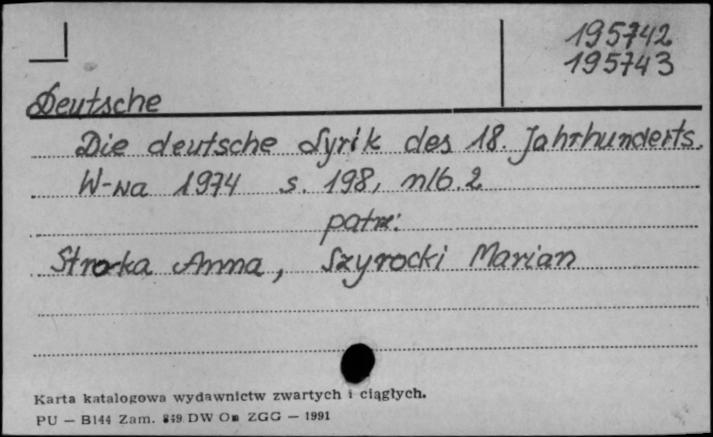 195742
195743
Deutsche
Die deutsche Lyrik des 18. Jahrhunderts.
W-wa 1974 s. 198, nlb. 2
patrz:
Stroka Anna, Szyrocki Marian
Karta katalogowa wydawnictw zwartych i ciągłych.
PU — B144 Zam. 849 DW Om ZGG — 1991